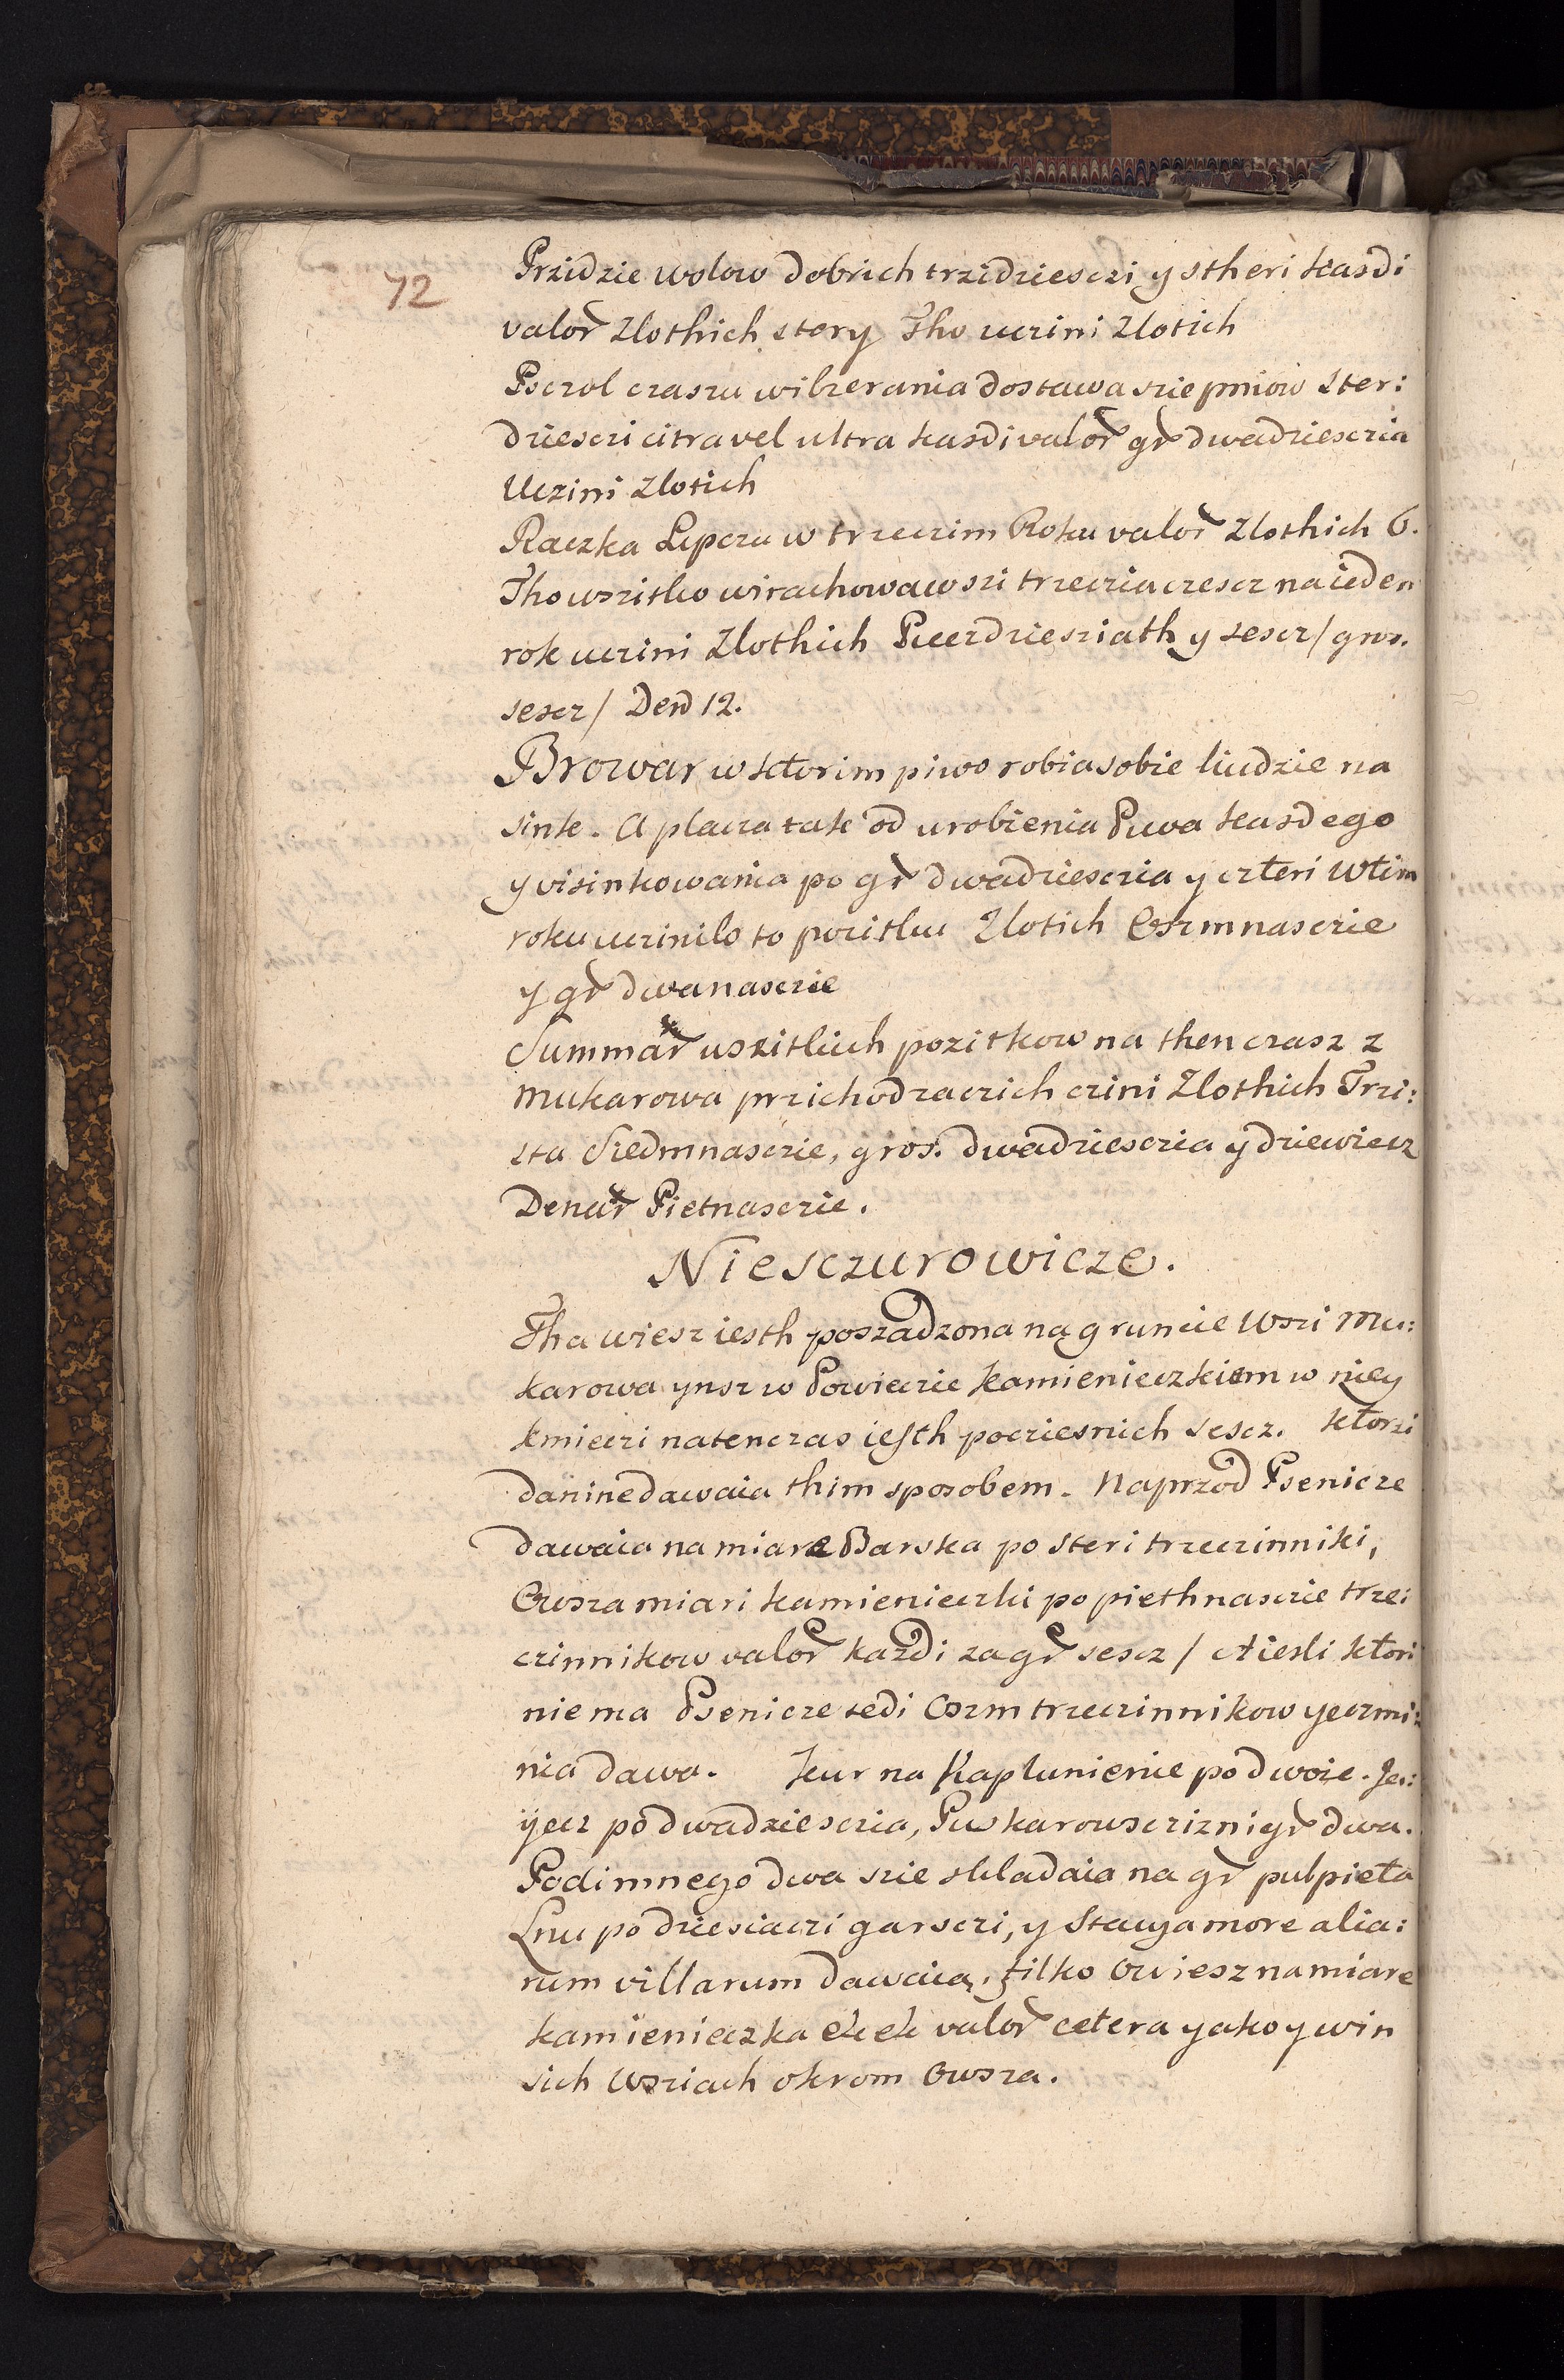 72
Przidzie wolow dobrich trzidziesczi y stheri kasdi
valor Zlothich stery Tho uczini Zlotich
Psczol czaszu wibzerania dostawa szie pniow ster:
dziesczi citra vel ultra kasdi valor gr dwadziesczia
Uczini Zlotich
Raczka Lipczu w trzeczim Roku valor Zlothich 6.
Tho wszitko wirachowawszi trzeczia czescz na ieden
rok uczini Zlothich Piecdziesziath y sescz / gros.
sescz / Den 12.
Browar w ktorim piwo robia sobie liudzie na
sink. A placza tak od urobienia Piwa kasdego
y visinkowania po gr dwadziesczia y czteri W tim
roku uczinilo to pozitku Zlotich Oszmnasczie
y gr dwanasczie
Summar wszitkich pozitkow na then czasz z
Mukarowa przichodzaczich czini Zlothich Trzi:
sta Siedmnasczie, gros. dwadziesczia y dziewiecz
Denar Pietnasczie.
Niesczurowicze.
Tha wiesz iesth poszadzona na gruncie Wszi Mu:
karowa ynsz w Powieczie Kamienieczkiem w niey
kmieczi natenczas iesth pocziesnich sescz. ktorzi
danine dawaia thim sposobem. Naprzod Psenicze
dawaia na miare Barska po steri trzeczinniki,
Owsza miari kamienieczki po piethnasczie trze:
czinnikow valor kazdi za gr sescz / A iesli ktori
nie ma Psenicze tedi Oszm trzeczinnikow yeczmi:
nia dawa. Kur na Kaplunienie po dwoie. Ja:
yecz po dwadziesczia, Puskarowsczizni gr dwa.
Podimnego dwa szie skladaia na gr pulpieta
Lnu po dziesiaczi garsczi, y Stacya more alia:
rum villarum dawaia, tilko Owiesz na miare
kamienieczka etc etc valor cetera yako y w in
sich Wsziach okrom Owsza.